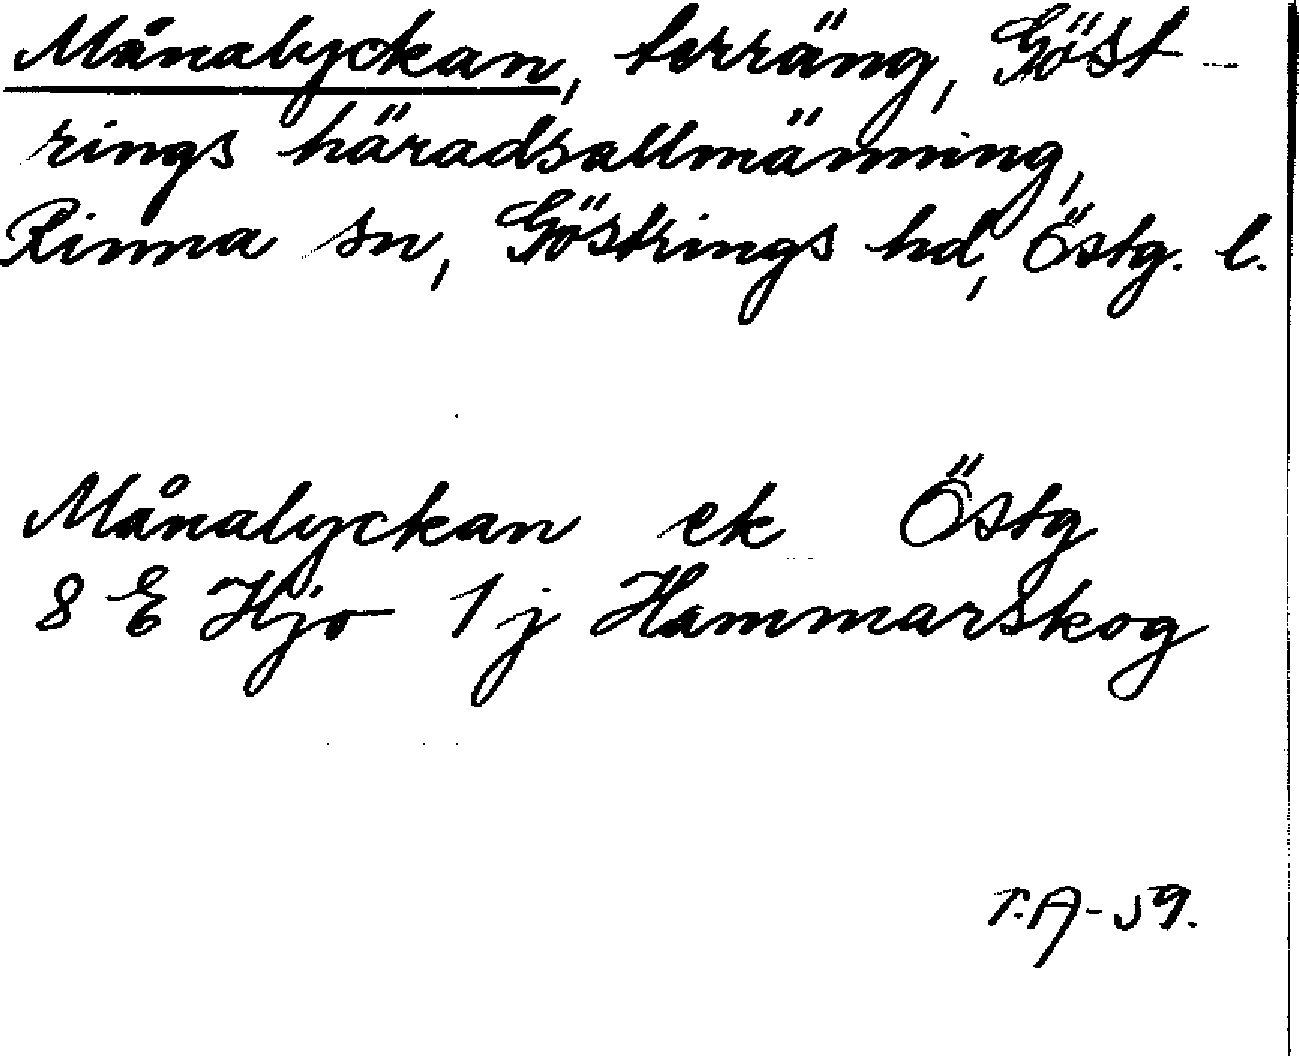 Månalyckan, terräng, Göst-
rings häradsallmänning,
Rinna sn, Göstrings hd, Östg. l.
Månalyckan ek Östg
8 E Hjo 1j Hammarskog
T.A-59.